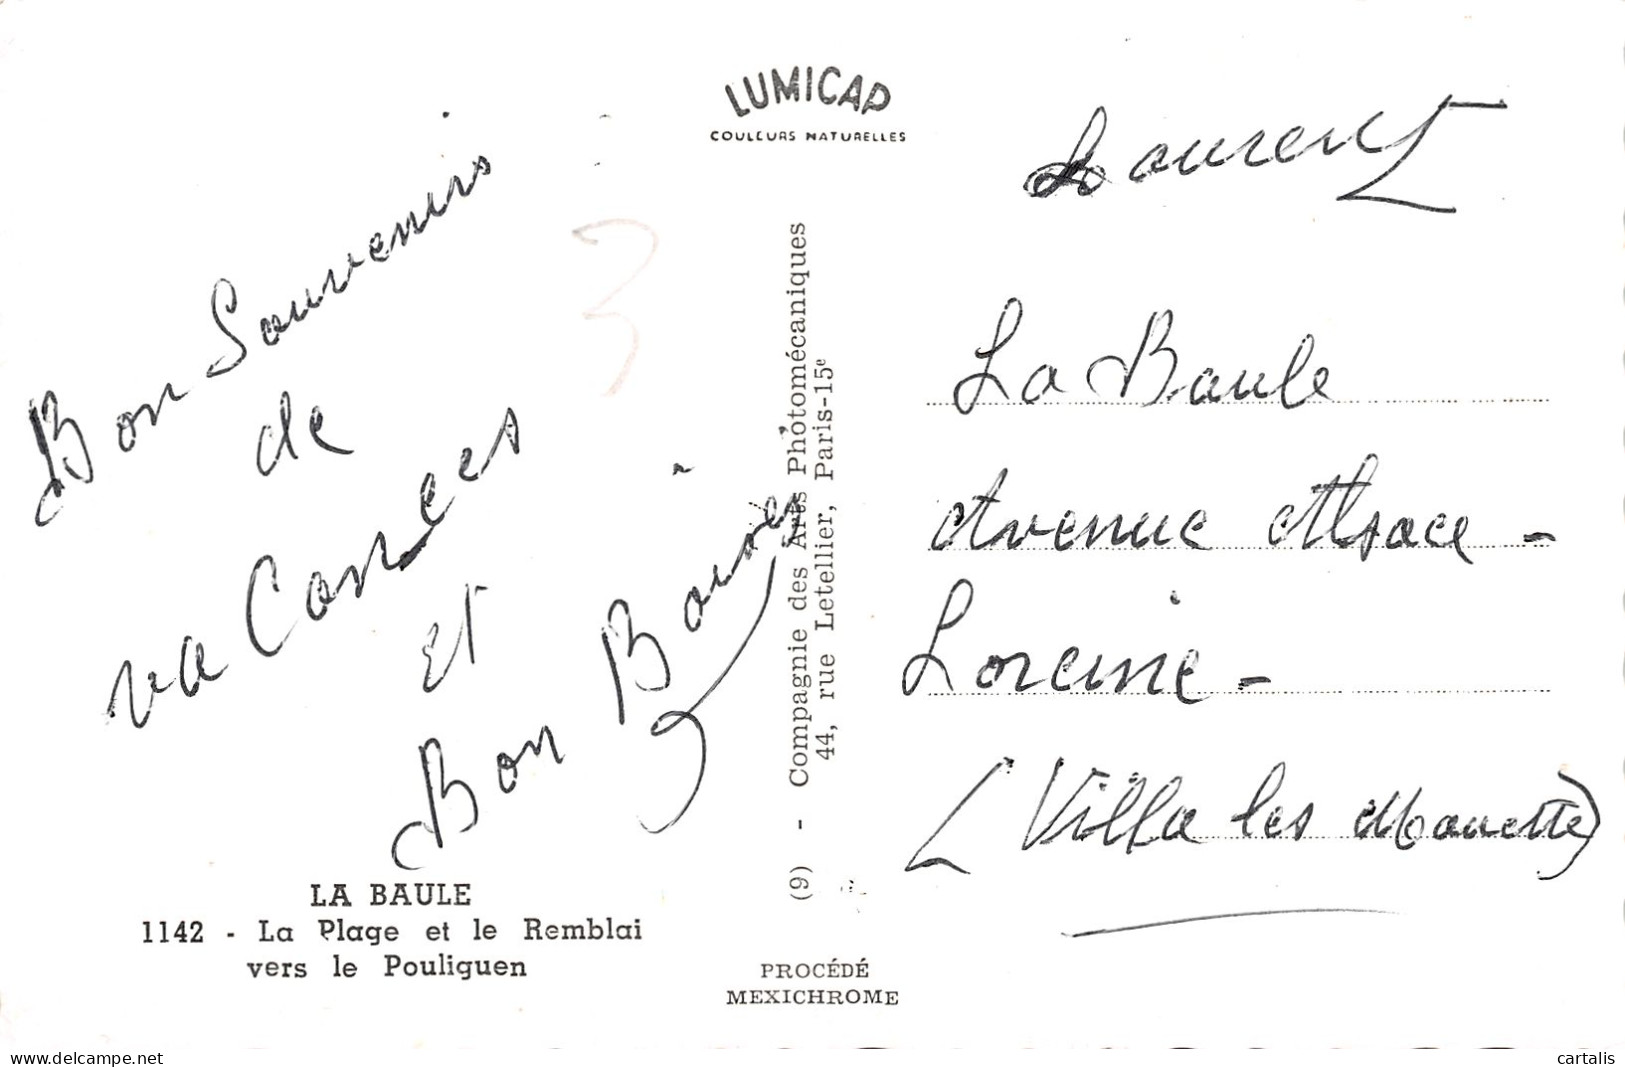 LUMICAP
COULEURS NATURELLES
Bon Souvenirs
de
vacances
et
Bon Baiser
3
LA BAULE
1142 - La Plage et le Remblai
vers le Pouliguen
(9) - Compagnie des Arts Photomécaniques
44, rue Letellier, Paris-15e
PROCÉDÉ
MEXICHROME
Laurent
La Baule
Avenue Alsace -
Loreine -
(Villa les Mouette)
www.delcampe.net
cartalis